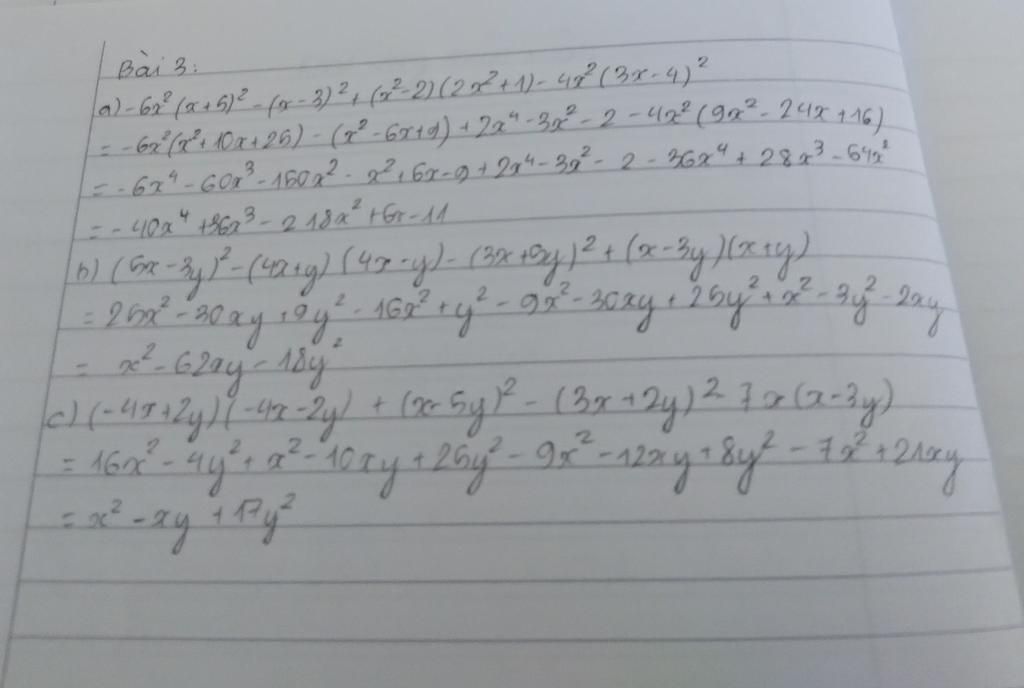 Bài 3:
a) -6x²(x+5)² - (x-3)² + (x²-2)(2x²+1) - 4x²(3x-4)²
= -6x²(x²+10x+25) - (x²-6x+9) + 2x⁴-3x²-2 - 4x²(9x²-24x+16)
= -6x⁴-60x³-150x²-x²+6x-9+2x⁴-3x²-2-36x⁴+28x³-64x²
= -40x⁴+36x³-218x²+6x-11
b) (5x-3y)²-(4x+y)(4x-y)-(3x+5y)²+(x-3y)(x+y)
= 25x²-30xy+9y²-16x²+y²-9x²-30xy+25y²+x²-3y²-2xy
= x²-62xy-18y²
c) (-4x+2y)(-4x-2y) + (x-5y)² - (3x+2y)²-7x(x-3y)
= 16x²-4y²+x²-10xy+25y²-9x²-12xy+8y²-7x²+21xy
= x²-xy+17y²